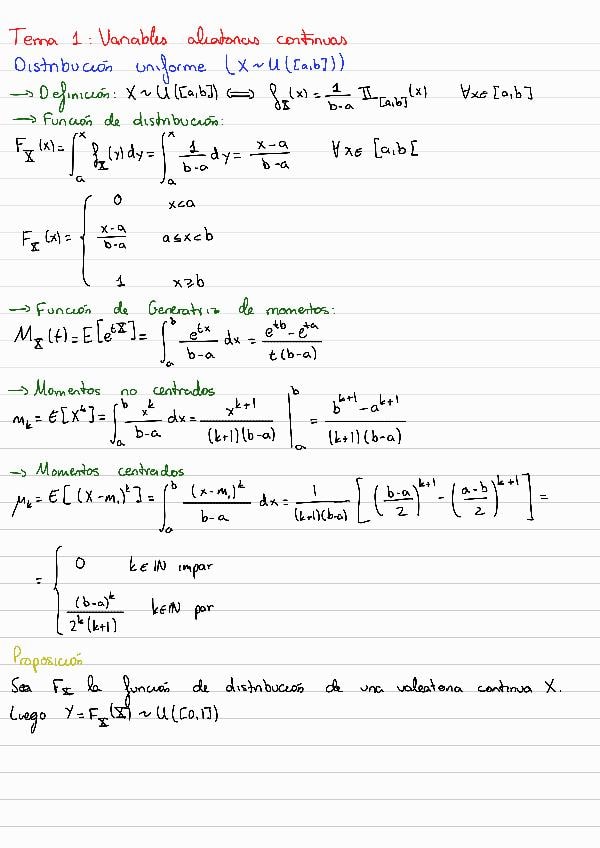 Tema 1: Variables aleatorias continuas
Distribución uniforme (X ~ U([a,b]))
→ Definición: X ~ U([a,b]) ⟺ f_X(x) = 1/(b-a) 𝕀_[a,b](x) ∀x∈[a,b]
→ Función de distribución:
F_X(x) = ∫_a^x f_X(y) dy = ∫_a^x 1/(b-a) dy = (x-a)/(b-a) ∀x∈[a,b[
F_X(x) = { 0 x<a
(x-a)/(b-a) a≤x<b
1 x≥b
→ Función de Generatriz de momentos:
M_X(t) = E[e^{tX}] = ∫_a^b e^{tx}/(b-a) dx = (e^{tb} - e^{ta})/(t(b-a))
→ Momentos no centrados
m_k = E[X^k] = ∫_a^b x^k/(b-a) dx = x^{k+1}/((k+1)(b-a)) |_a^b = (b^{k+1} - a^{k+1})/((k+1)(b-a))
→ Momentos centrados
μ_k = E[(X-m_1)^k] = ∫_a^b (x-m_1)^k/(b-a) dx = 1/((k+1)(b-a)) [((b-a)/2)^{k+1} - ((a-b)/2)^{k+1}] =
= { 0 k∈ℕ impar
(b-a)^k/(2^k(k+1)) k∈ℕ par
Proposición
Sea F_X la función de distribución de una valeatoria continua X.
Luego Y = F_X(X) ~ U([0,1])